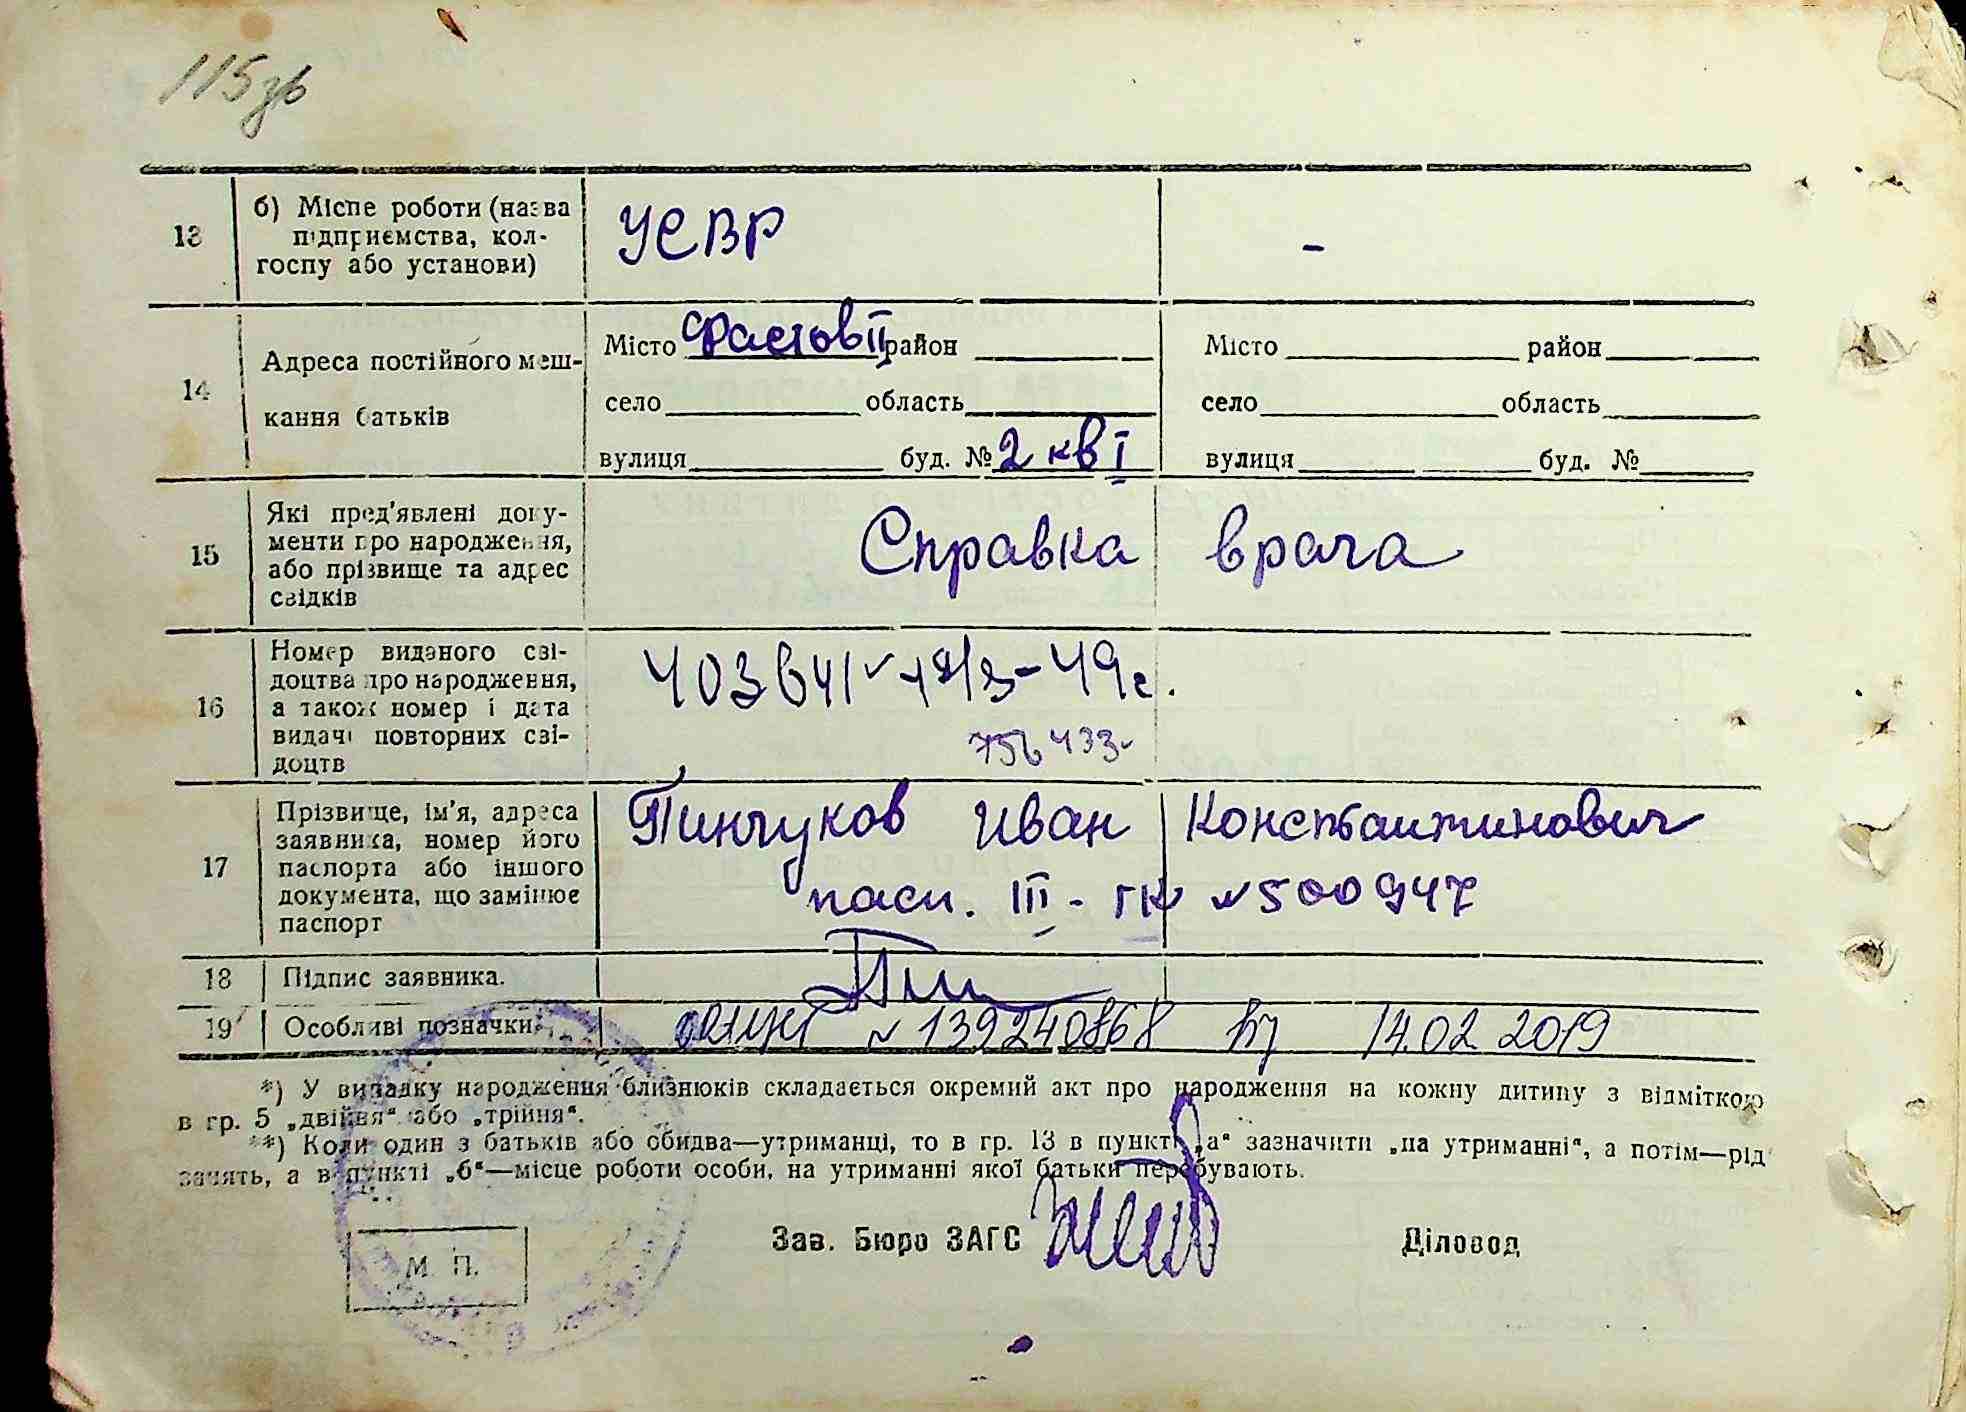 115зв
13
б) Місце роботи (назва
підприємства, кол-
госпу або установи)
УСВР
-
14
Адреса постійного меш-
кання батьків
Місто Фастов II район
село область
вулиця буд. № 2 кв I
Місто район
село область
вулиця буд. №
15
Які пред'явлені доку-
менти про народження,
або прізвище та адрес
свідків
Справка врача
16
Номер виданого сві-
доцтва про народження,
а також номер і дата
видачі повторних сві-
доцтв
403641 -49г.
756433
17
Прізвище, ім'я, адреса
заявника, номер його
паспорта або іншого
документа, що замінює
паспорт
Пинчуков Иван Константинович
пасп. III - ГК № 500947
18
Підпис заявника.
19
Особливі позначки:
№ 139240868 14.02 2019
*) У випадку народження близнюків складається окремий акт про народження на кожну дитину з відміткою
в гр. 5 „двійня“ або „трійня“.
**) Коли один з батьків або обидва—утриманці, то в гр. 13 в пункті „а“ зазначити „на утриманні“, а потім—рід
занять, а в пункті „б“—місце роботи особи, на утриманні якої батьки перебувають.
М. П.
Зав. Бюро ЗАГС
Діловод